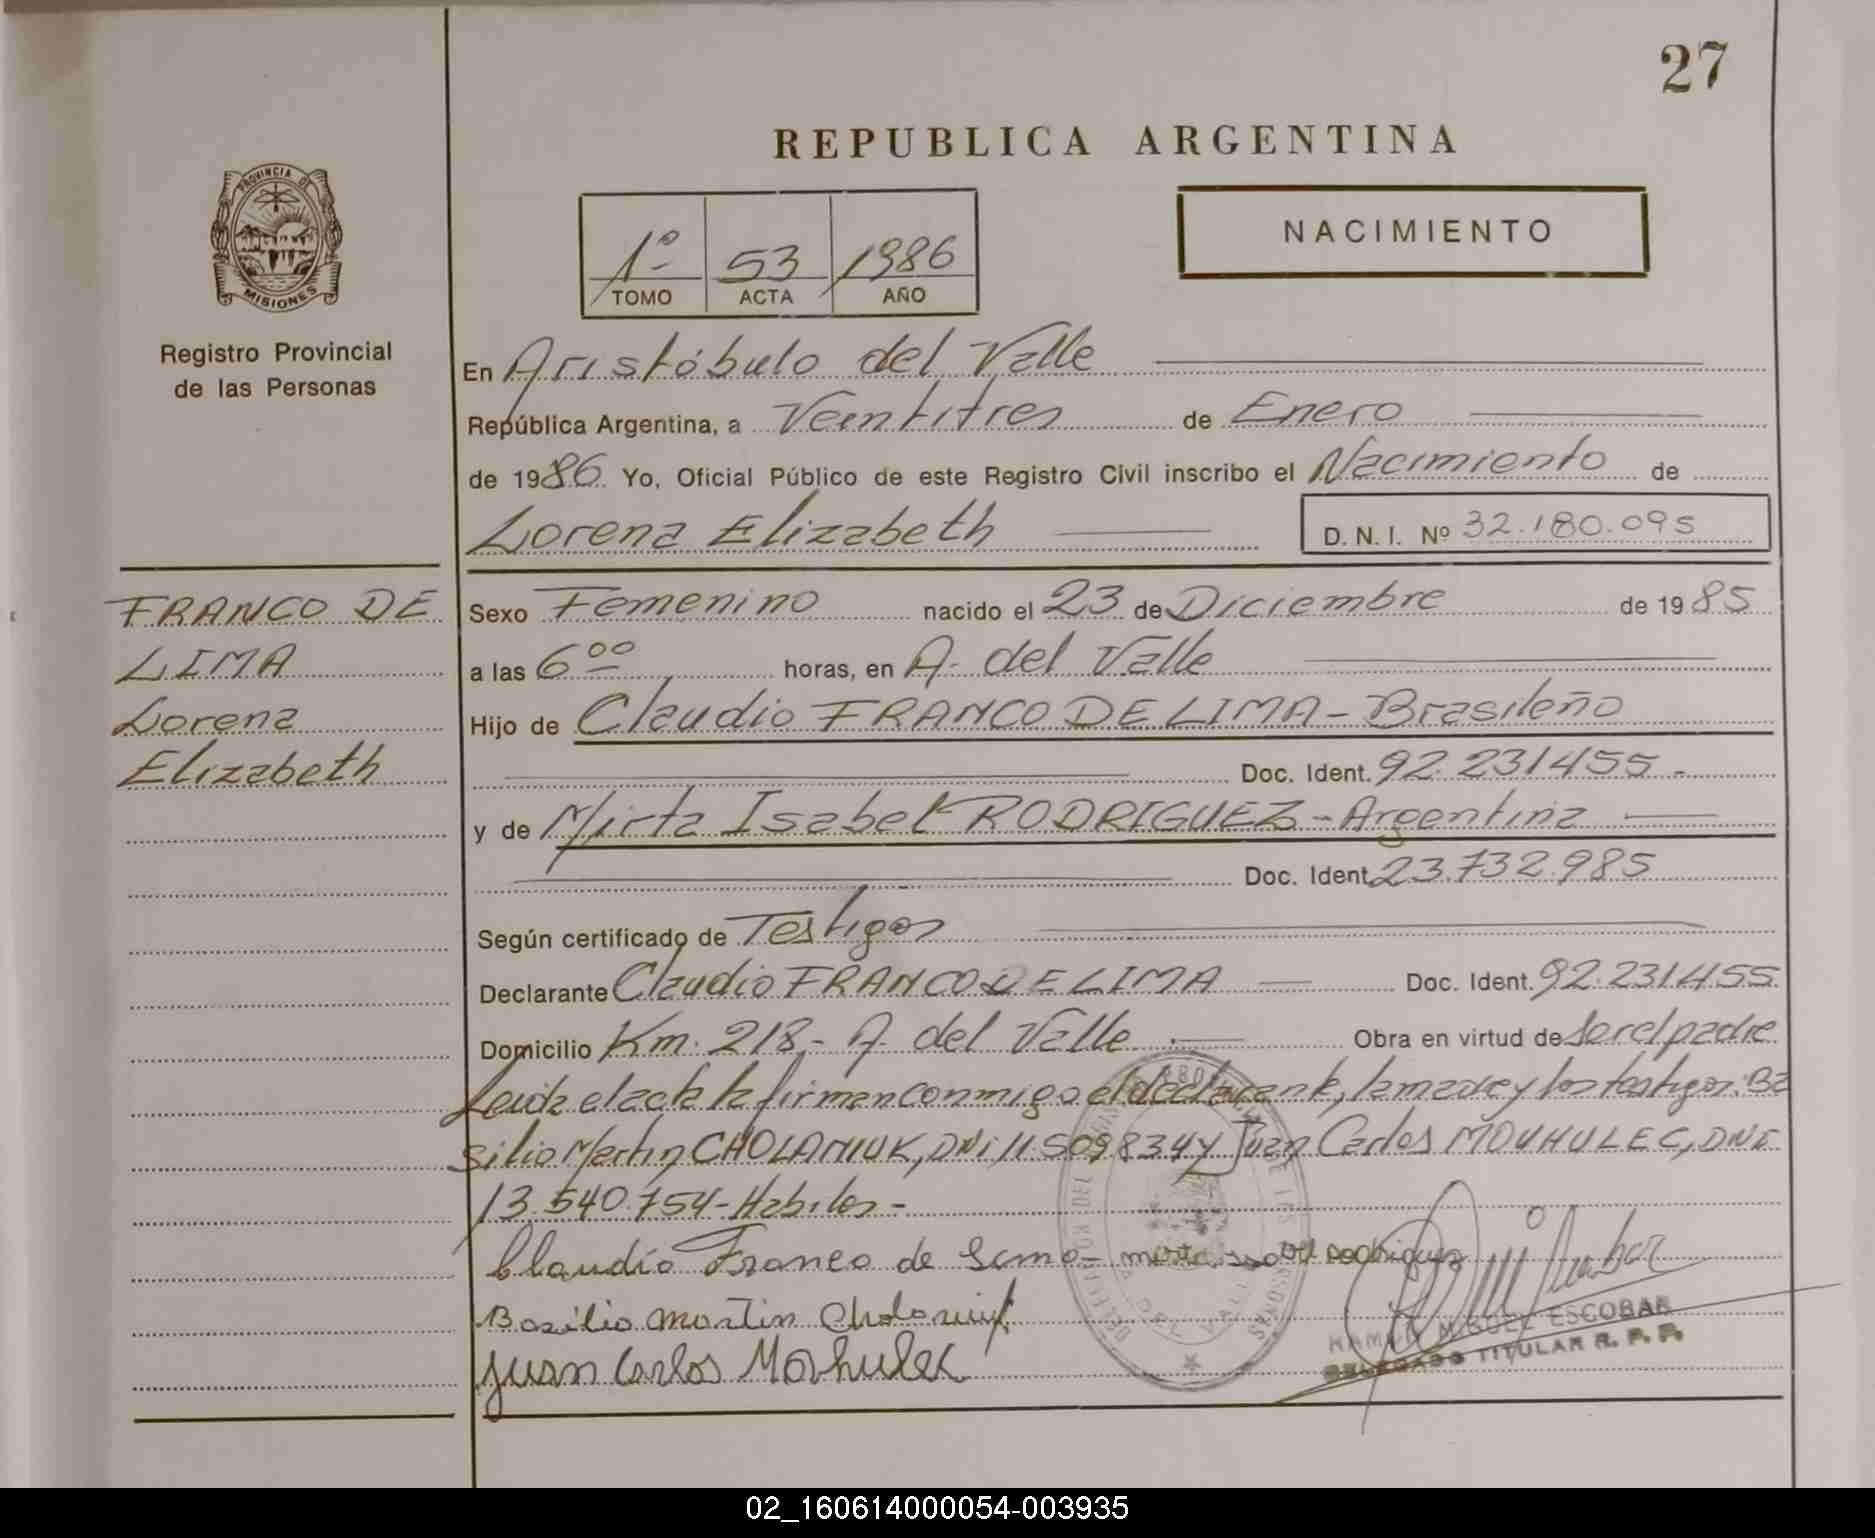 27
REPUBLICA ARGENTINA
PROVINCIA DE
MISIONES
Registro Provincial
de las Personas
1º 53 1986
TOMO ACTA AÑO
NACIMIENTO
En Aristóbulo del Valle
República Argentina, a Veintitres de Enero
de 1986 Yo, Oficial Público de este Registro Civil inscribo el Nacimiento de
Lorena Elizabeth D. N. I. Nº 32.180.095
FRANCO DE
LIMA
Lorena
Elizabeth
Sexo Femenino nacido el 23 de Diciembre de 1985
a las 6ºº horas, en A. del Valle
Hijo de Claudio FRANCO DE LIMA - Brasileño
Doc. Ident. 92.231455.-
y de Mirta Isabel RODRIGUEZ - Argentina
Doc. Ident. 23.732.985
Según certificado de Testigos
Declarante Claudio FRANCO DE LIMA Doc. Ident. 92.231455
Domicilio Km. 218.- A. del Valle Obra en virtud de ser el padre
Leida el acta la firman conmigo el declarante, la madre y los testigos: Ba
silio Martin CHOLANIUK, DNi 11.509834 y Juan Carlos MOUHULEC, DNI
13.540.754 - Habiles -
Claudio Franco de Lima - mirta isabel Rodriguez
Basilio Martin Cholaniuk
Juan Carlos Mouhulec
RAMON MIGUEL ESCOBAR
DELEGADO TITULAR R. P. P.
02_160614000054-003935